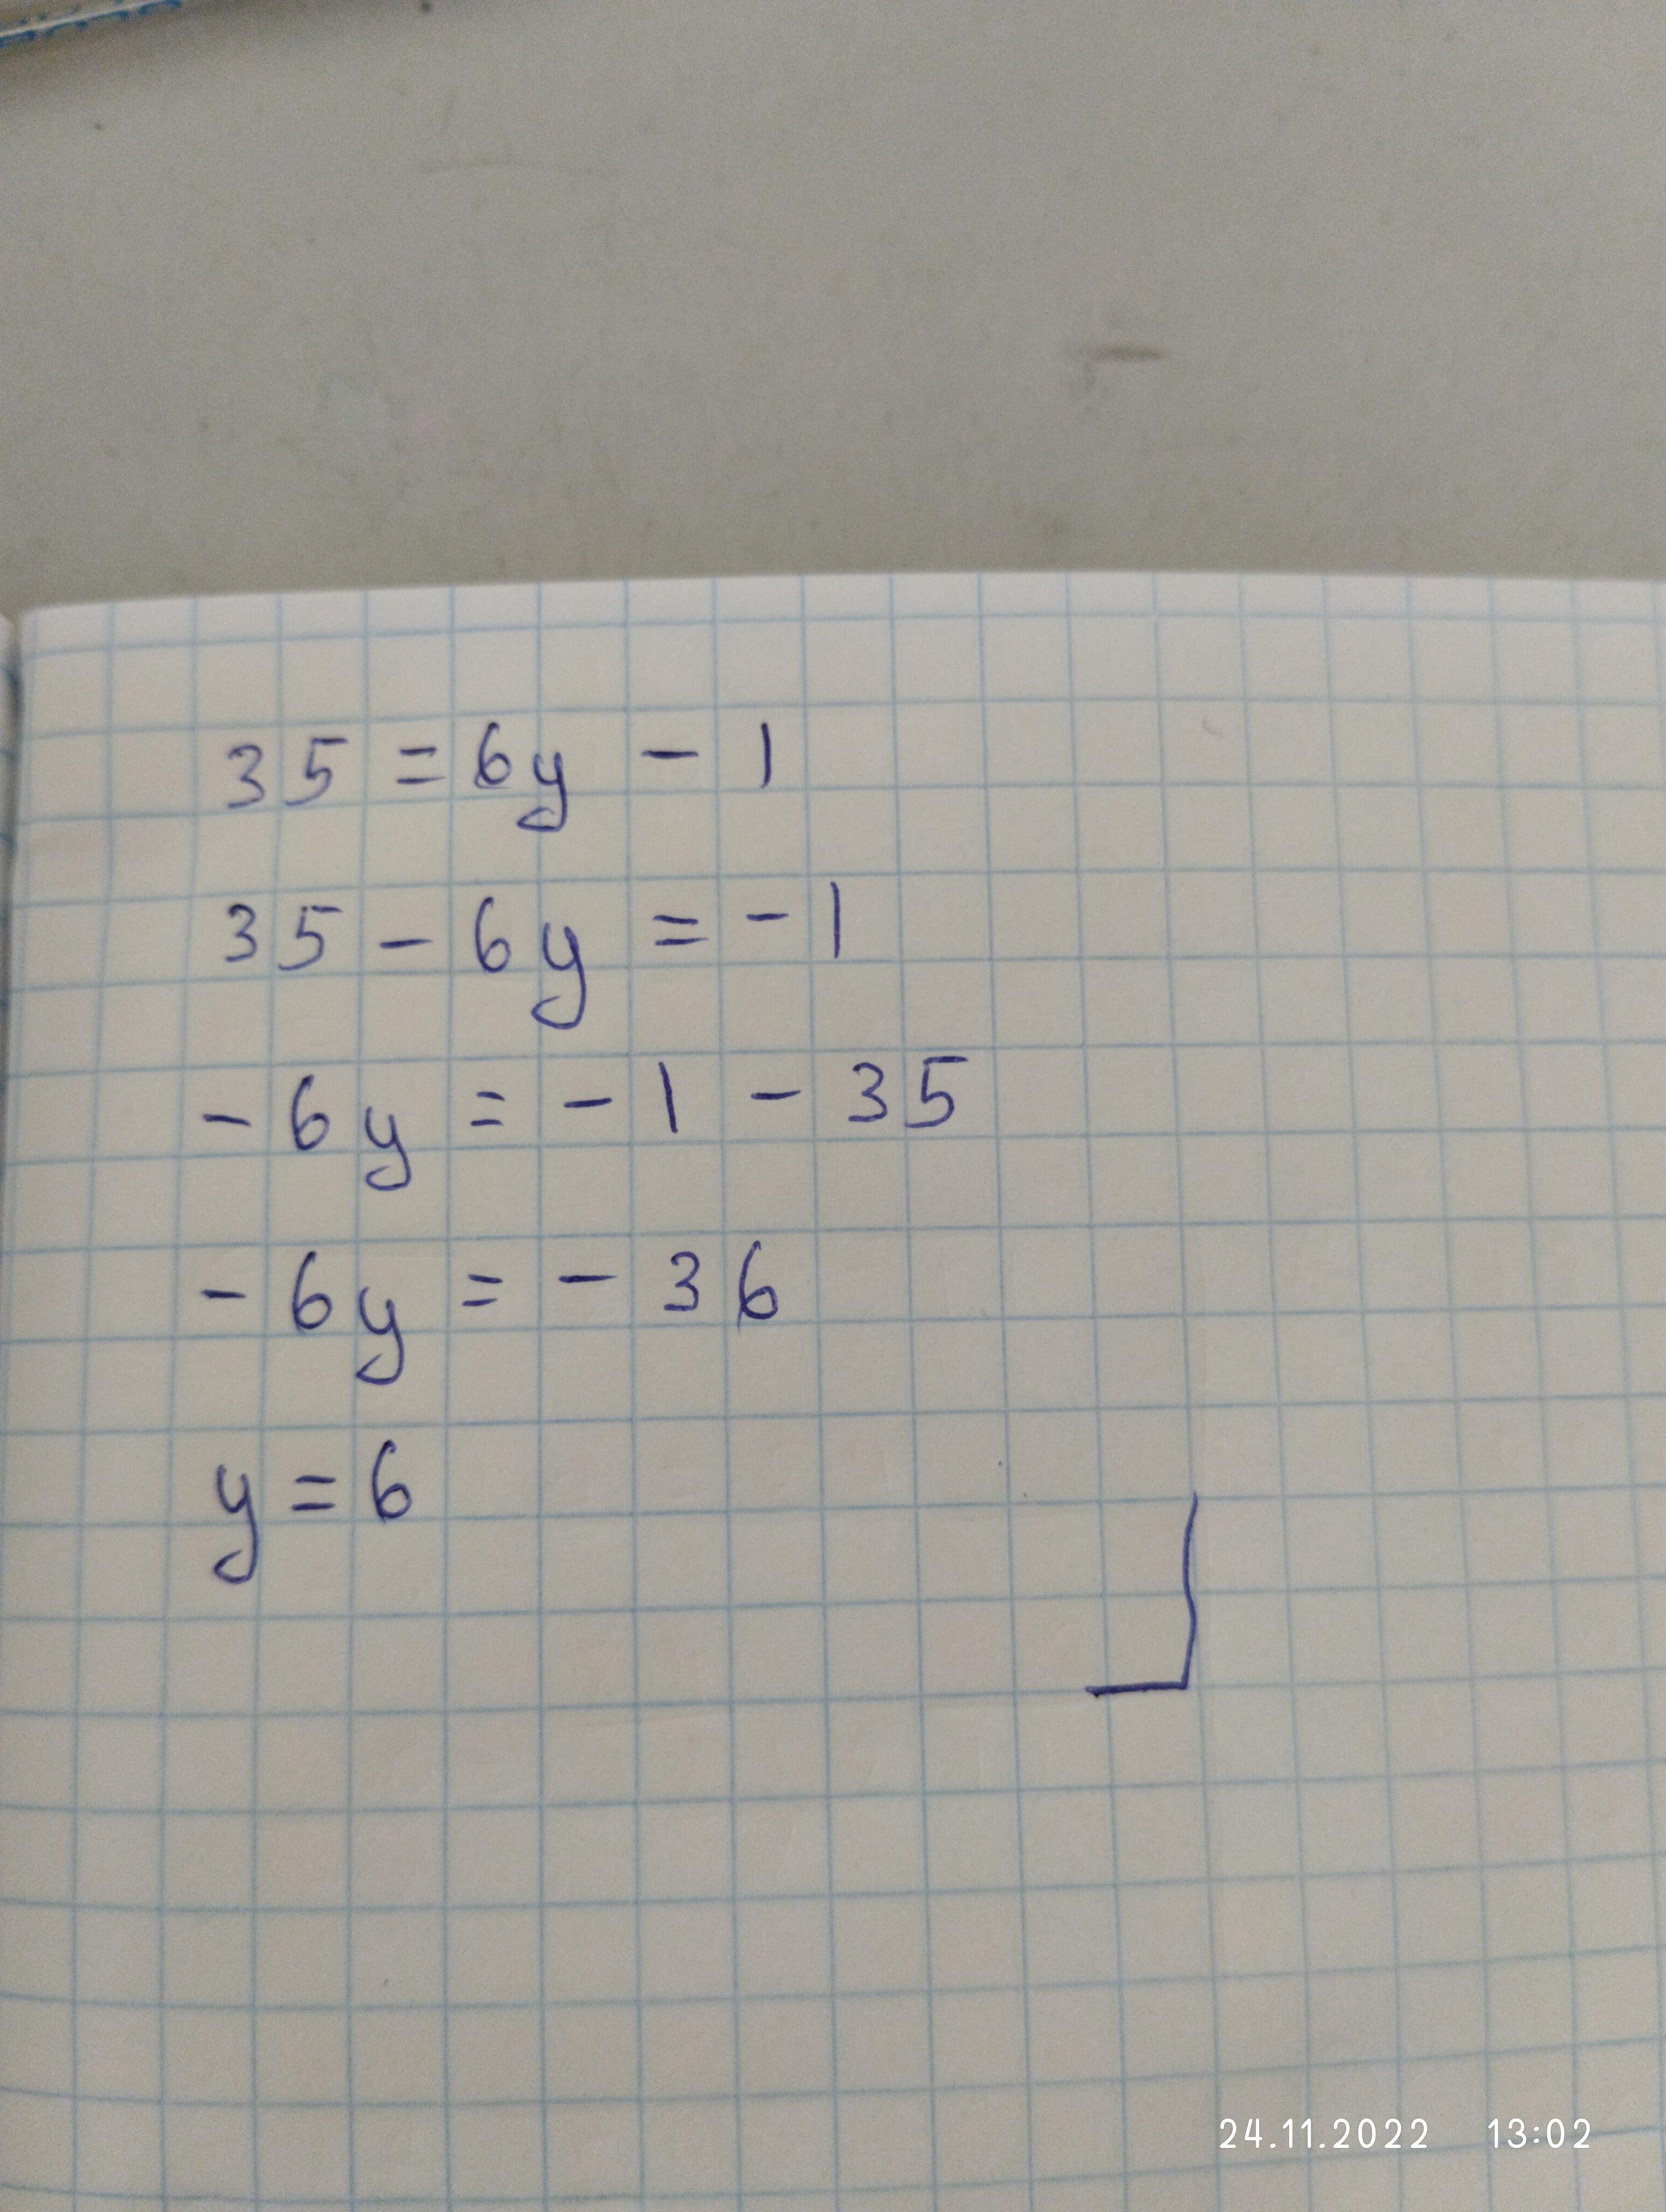 35 = 6y - 1
35 - 6y = - 1
- 6y = - 1 - 35
- 6y = - 36
y = 6
24.11.2022 13:02